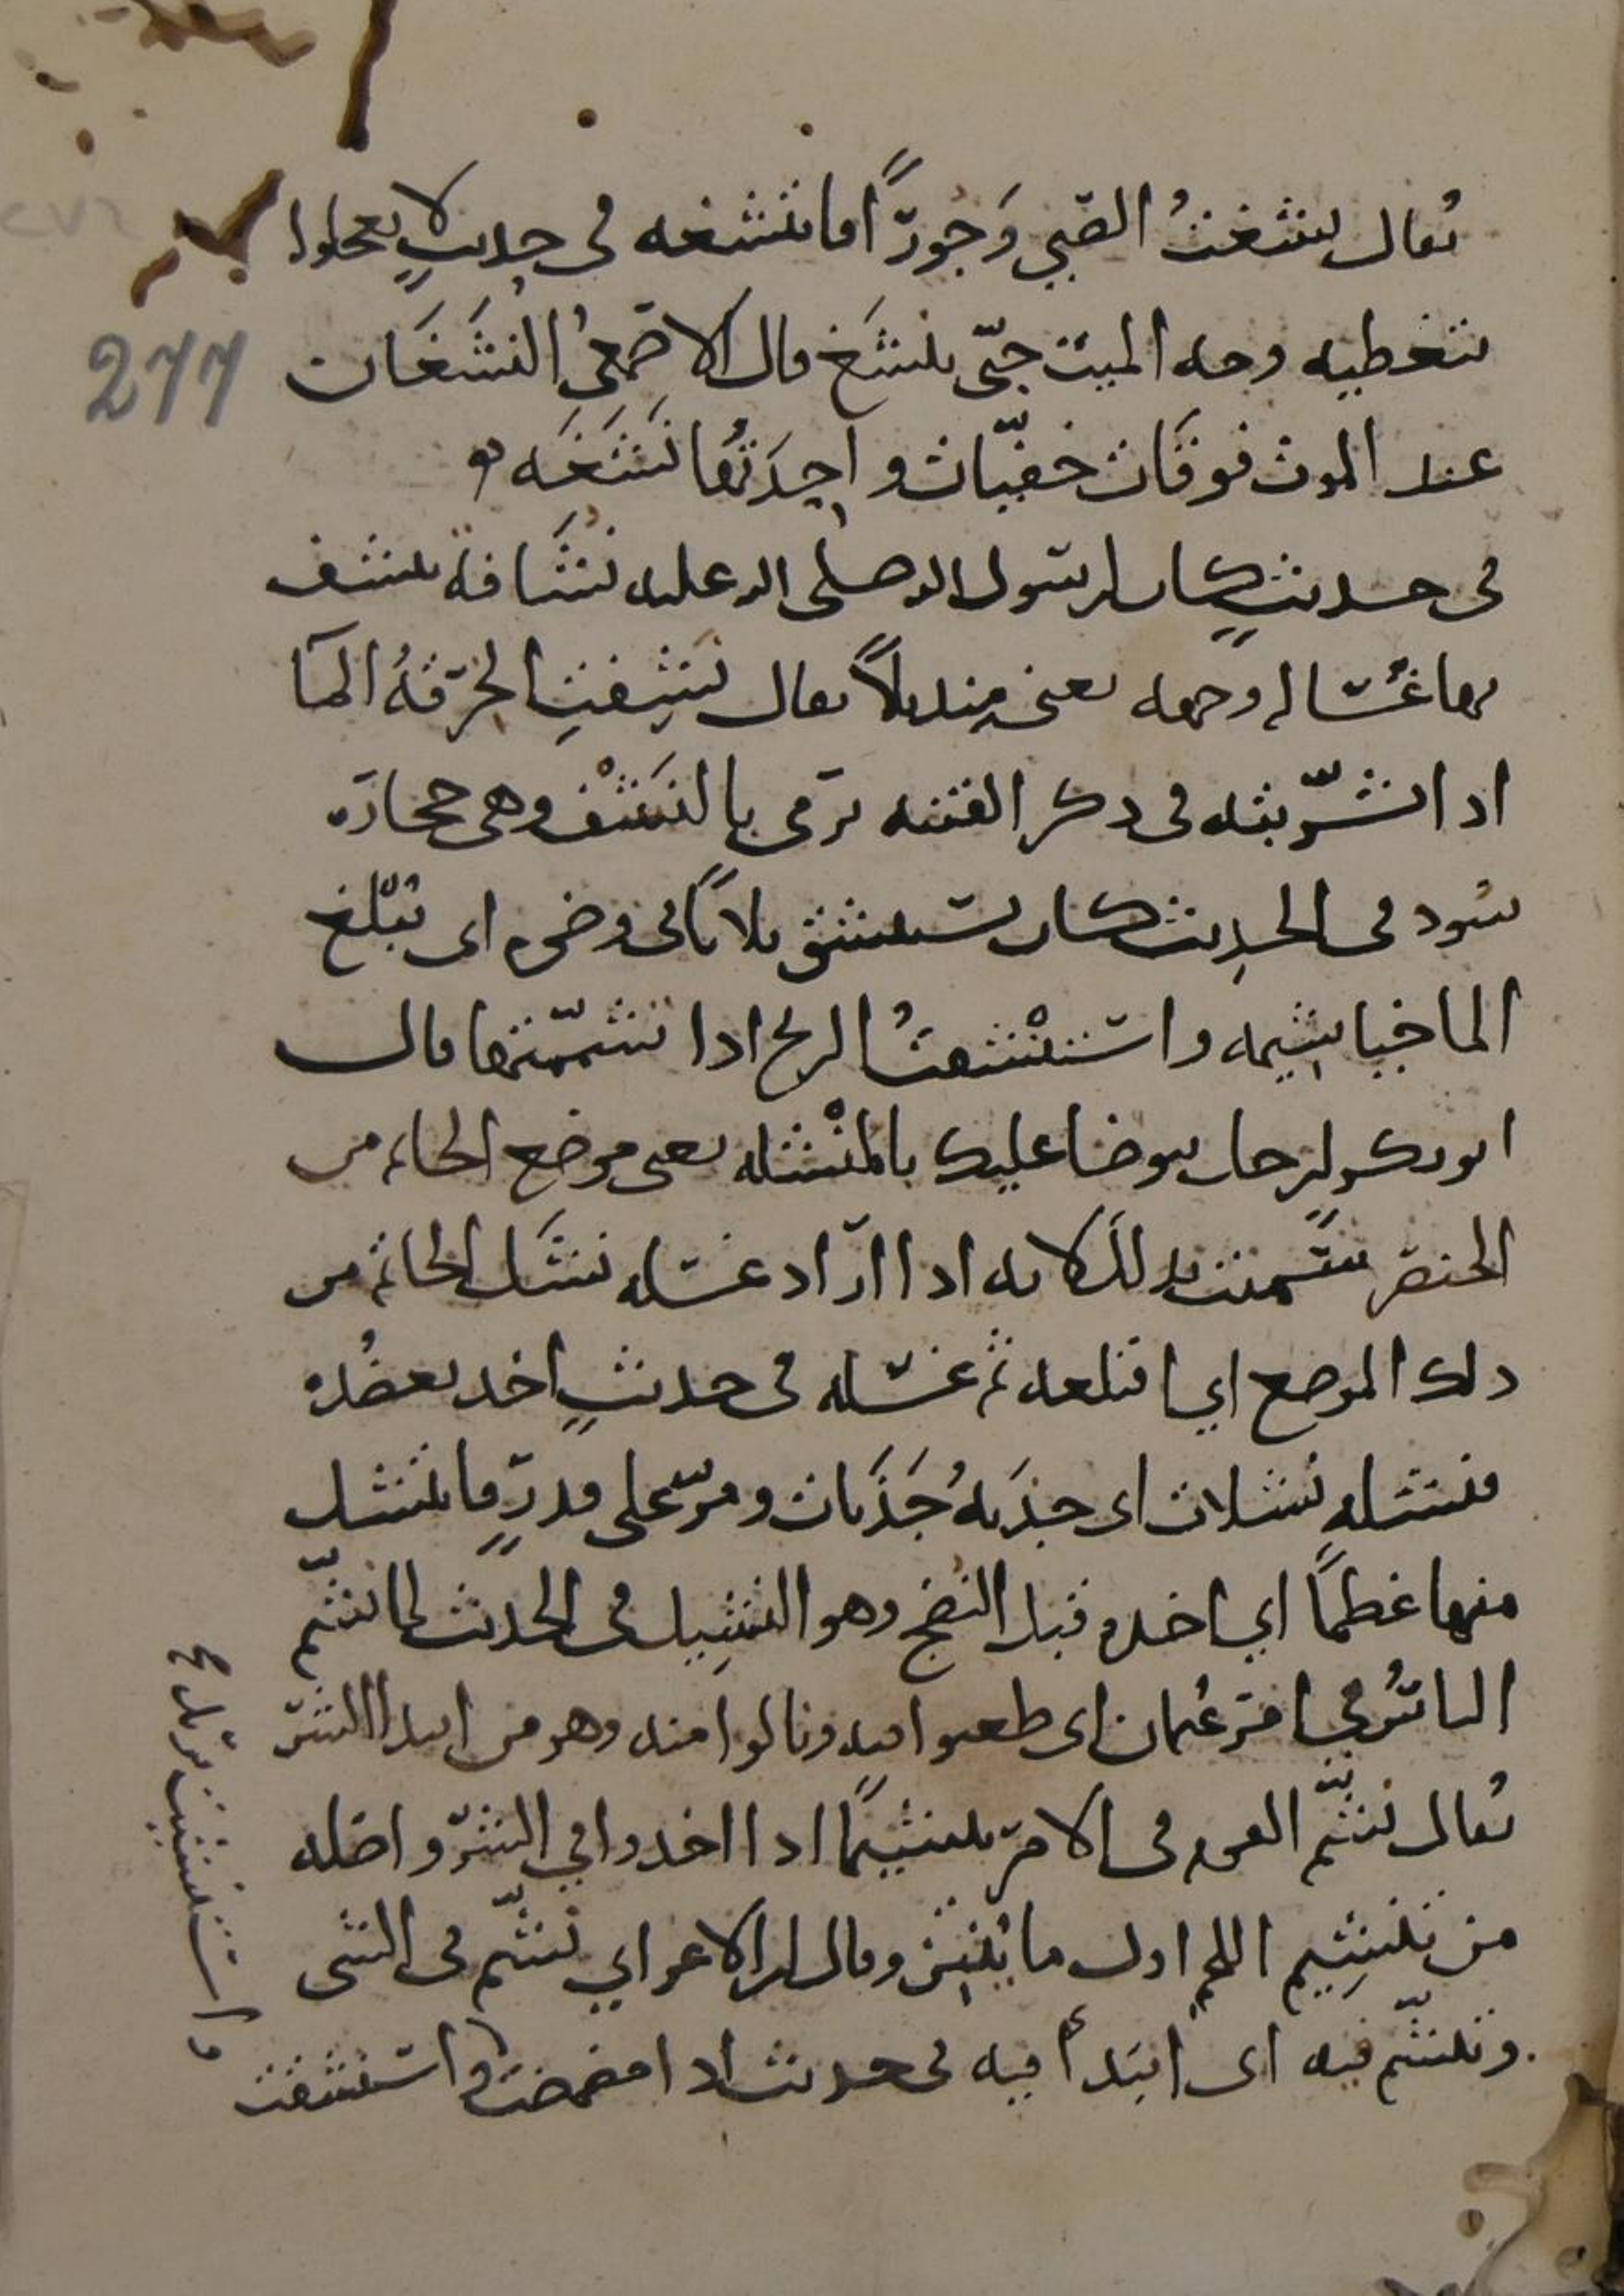 يقال نشغتُ الصّبي وَجورًا فانتشغه في حديثٍ لا تعجلوا
بتغطيه وجه الميت حتّى ينشَغ قال الاصمعىُ النَشَغَات
عند الموت فوقَات خفيّات واحِدَتُها نَشَغَه
في حديثٍ كان لرسول الله صلى الله عليه نشّافة ينشف
بها غُسَاله وجهه يعنى مِنديلاً يقال نشِفتِ الخِرقةُ المآ
اذا تشرّبته في ذكر الفتنه ترمى بالنَشْف وهى حجارة
سُود في الحدِيث كان يستنشق ثلاثًا في وضوءه اى تبلّغ
الما خياشِيمه واستنْشقتُ الريح اذا تشمّمتها قال
ابو بكر لرجل توضا عليك بالمنْشله يعنى موضع الخاتم من
الخنصر سُمّيت بذلك لانه اذا اراد غسله نشَل الخاتم من
ذلك الموضع اي اقتلعه ثم غسله في حديثٍ اخذ بعضُده
فنشله نشلات اى جذبهُ جَذَبات ومرّ على قدرٍ فانتشل
منها عَظمًا اي اخذه قبل النضج وهو النشِيل في الحديث لما نشّم
الناسُ في امر عُثمان اى طعنوا فيه ونالوا منه وهو من ابتداا الشرّ
يقال نشّم القوم في الامر تنشيمًا اذا اخذوا في الشرّ واصله
من تنشِيم اللحم اول ما يُنتِن وقال ابن الاعرابي نشّم في الشى
وتنشّم فيه اى ابتدأ فيه في حديث اذا مضمضت واستنشقت
واستنشيت
277